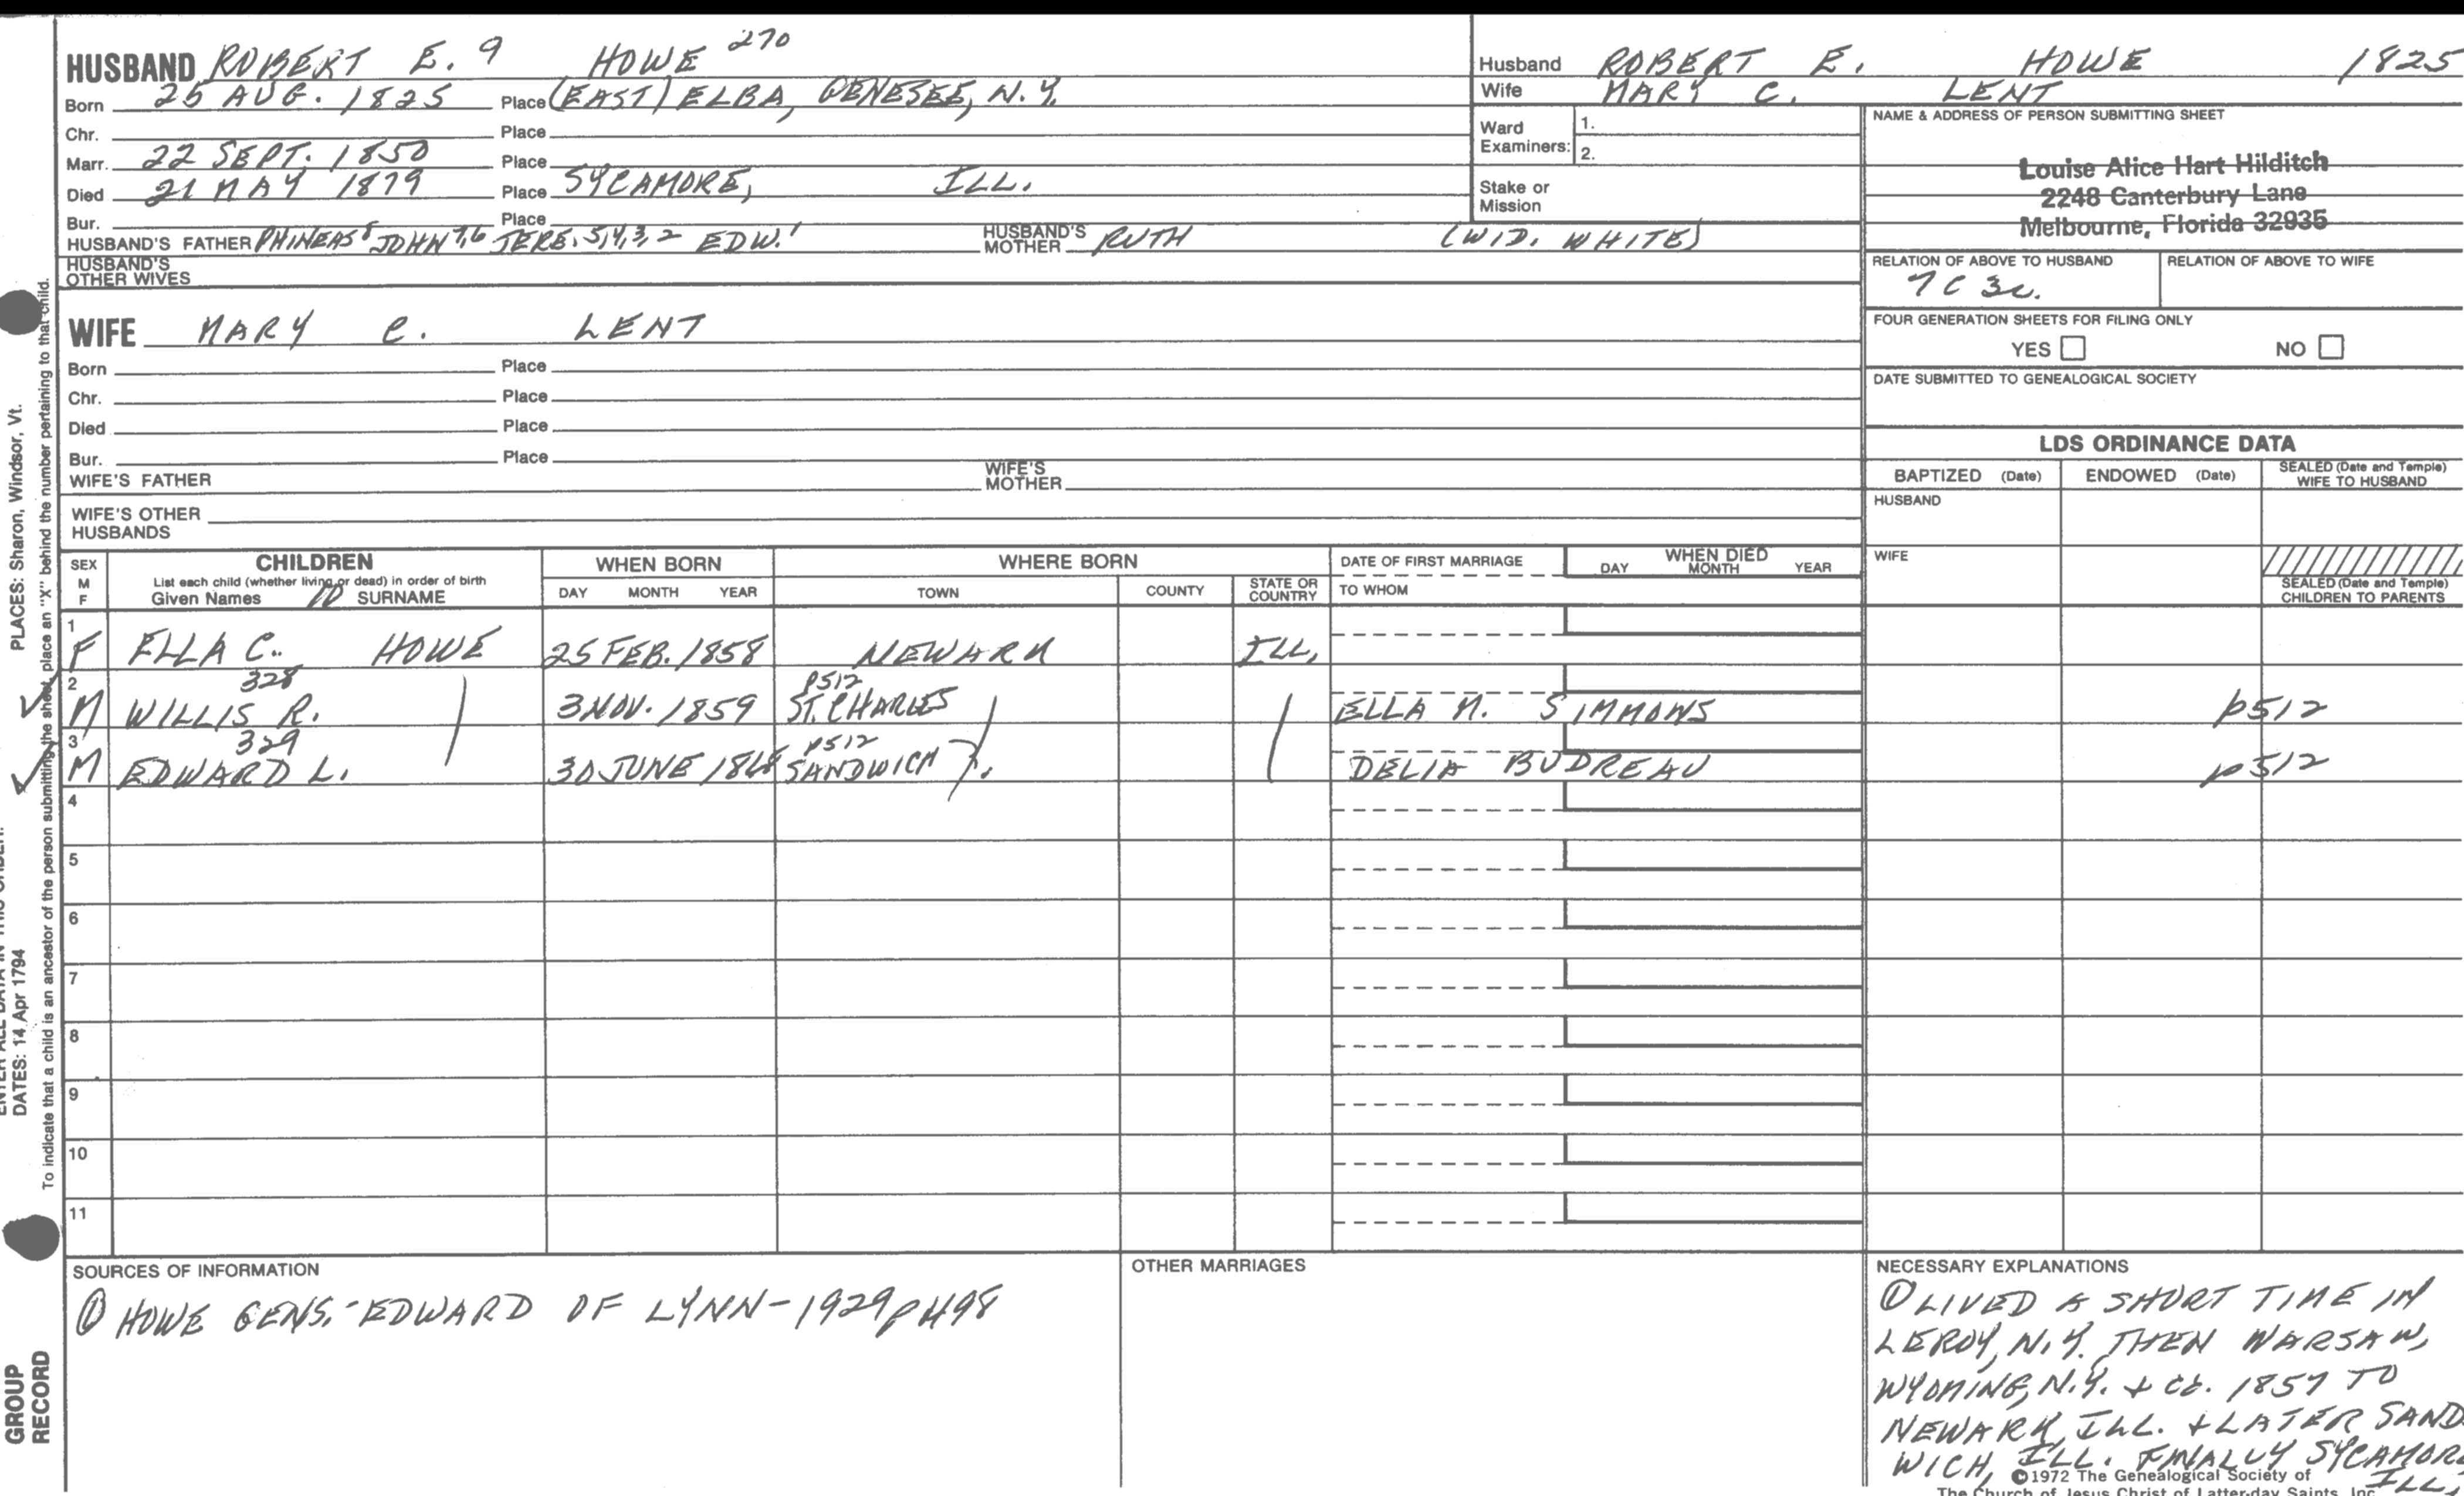 HUSBAND ROBERT E. 9 HOWE 270
Born 25 AUG. 1825 Place (EAST) ELBA, GENESEE, N.Y.
Chr. Place
Marr. 22 SEPT. 1850 Place
Died 21 MAY 1879 Place SYCAMORE, ILL.
Bur. Place
HUSBAND'S FATHER PHINEAS 8 JOHN 7,6 JERE. 5,4,3,2 EDW. 1 HUSBAND'S MOTHER RUTH (WID. WHITE)
HUSBAND'S OTHER WIVES
WIFE MARY C. LENT
Born Place
Chr. Place
Died Place
Bur. Place
WIFE'S FATHER WIFE'S MOTHER
WIFE'S OTHER HUSBANDS
Husband ROBERT E. HOWE 1825
Wife MARY C. LENT
Ward Examiners: 1.
2.
Stake or Mission
NAME & ADDRESS OF PERSON SUBMITTING SHEET
Louise Alice Hart Hilditch
2248 Canterbury Lane
Melbourne, Florida 32935
RELATION OF ABOVE TO HUSBAND RELATION OF ABOVE TO WIFE
7C 3r.
FOUR GENERATION SHEETS FOR FILING ONLY
YES NO
DATE SUBMITTED TO GENEALOGICAL SOCIETY
LDS ORDINANCE DATA
BAPTIZED (Date) ENDOWED (Date) SEALED (Date and Temple) WIFE TO HUSBAND
HUSBAND
WIFE
SEALED (Date and Temple) CHILDREN TO PARENTS
SEX M F
CHILDREN
List each child (whether living or dead) in order of birth
Given Names 10 SURNAME
WHEN BORN
DAY MONTH YEAR
WHERE BORN
TOWN COUNTY STATE OR COUNTRY
DATE OF FIRST MARRIAGE
TO WHOM
WHEN DIED
DAY MONTH YEAR
1
F ELLA C. HOWE 25 FEB. 1858 NEWARK ILL.
2 328 p512
M WILLIS R. 3 NOV. 1859 ST. CHARLES ELLA M. SIMMONS p512
3 329 p512
M EDWARD L. 30 JUNE SANDWICH DELIA BUDREAU p512
4
5
6
7
8
9
10
11
SOURCES OF INFORMATION
① HOWE GENS.-EDWARD OF LYNN-1929 p498
OTHER MARRIAGES
NECESSARY EXPLANATIONS
① LIVED A SHORT TIME IN
LEROY, N.Y. THEN WARSAW,
WYOMING, N.Y. + CA. 1857 TO
NEWARK, ILL. + LATER SAND-
WICH, ILL. FINALLY SYCAMORE
ILL.
©1972 The Genealogical Society of
The Church of Jesus Christ of Latter-day Saints, Inc.
PLACES: Sharon, Windsor, Vt.
DATES: 14 Apr 1794
To indicate that a child is an ancestor of the person submitting the sheet, place an "X" behind the number pertaining to that child.
GROUP
RECORD